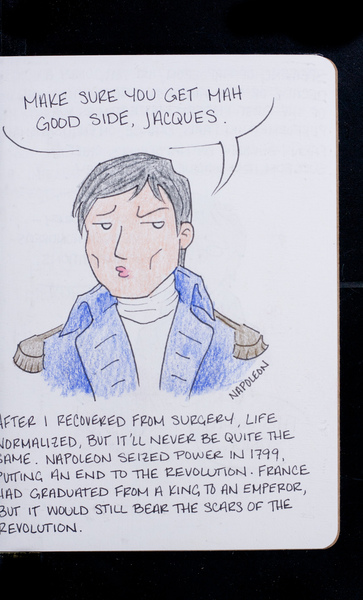 MAKE SURE YOU GET MAH
GOOD SIDE, JACQUES.
NAPOLEON
AFTER I RECOVERED FROM SURGERY, LIFE
NORMALIZED, BUT IT'LL NEVER BE QUITE THE
SAME. NAPOLEON SEIZED POWER IN 1799,
PUTTING AN END TO THE REVOLUTION. FRANCE
HAD GRADUATED FROM A KING TO AN EMPEROR,
BUT IT WOULD STILL BEAR THE SCARS OF THE
REVOLUTION.